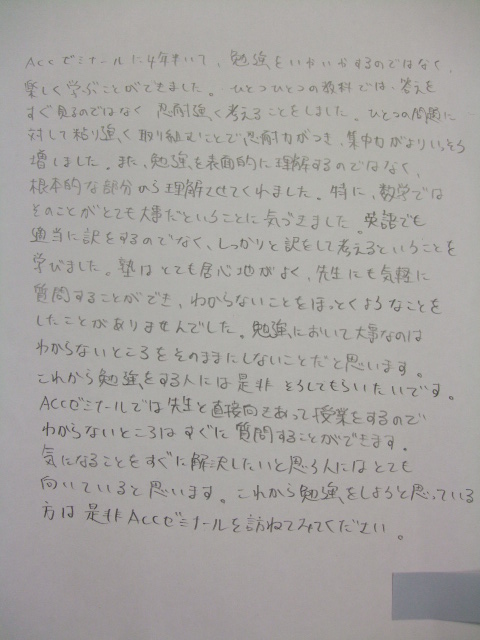 Accゼミナールに4年半いて、勉強をいやいやするのではなく、
楽しく学ぶことができました。ひとつひとつの教科では、答えを
すぐ見るのではなく 忍耐強く考えることをしました。ひとつの問題に
対して粘り強く取り組むことで忍耐力がつき、集中力がよりいっそう
増しました。また、勉強を表面的に理解するのではなく、
根本的な部分から理解させてくれました。特に、数学では
そのことがとても大事だということに気づきました。英語でも
適当に訳をするのでなく、しっかりと訳をして考えるということを
学びました。塾はとても居心地がよく、先生にも気軽に
質問することができ、わからないことをほっとくようなことを
したことがありませんでした。勉強において大事なのは
わからないところをそのままにしないことだと思います。
これから勉強をする人には是非そうしてもらいたいです。
ACCゼミナールでは先生と直接向きあって授業をするので
わからないところはすぐに質問することができます。
気になることをすぐに解決したいと思う人にはとても
向いていると思います。これから勉強をしようと思っている
方は是非ACCゼミナールを訪ねてみてください。